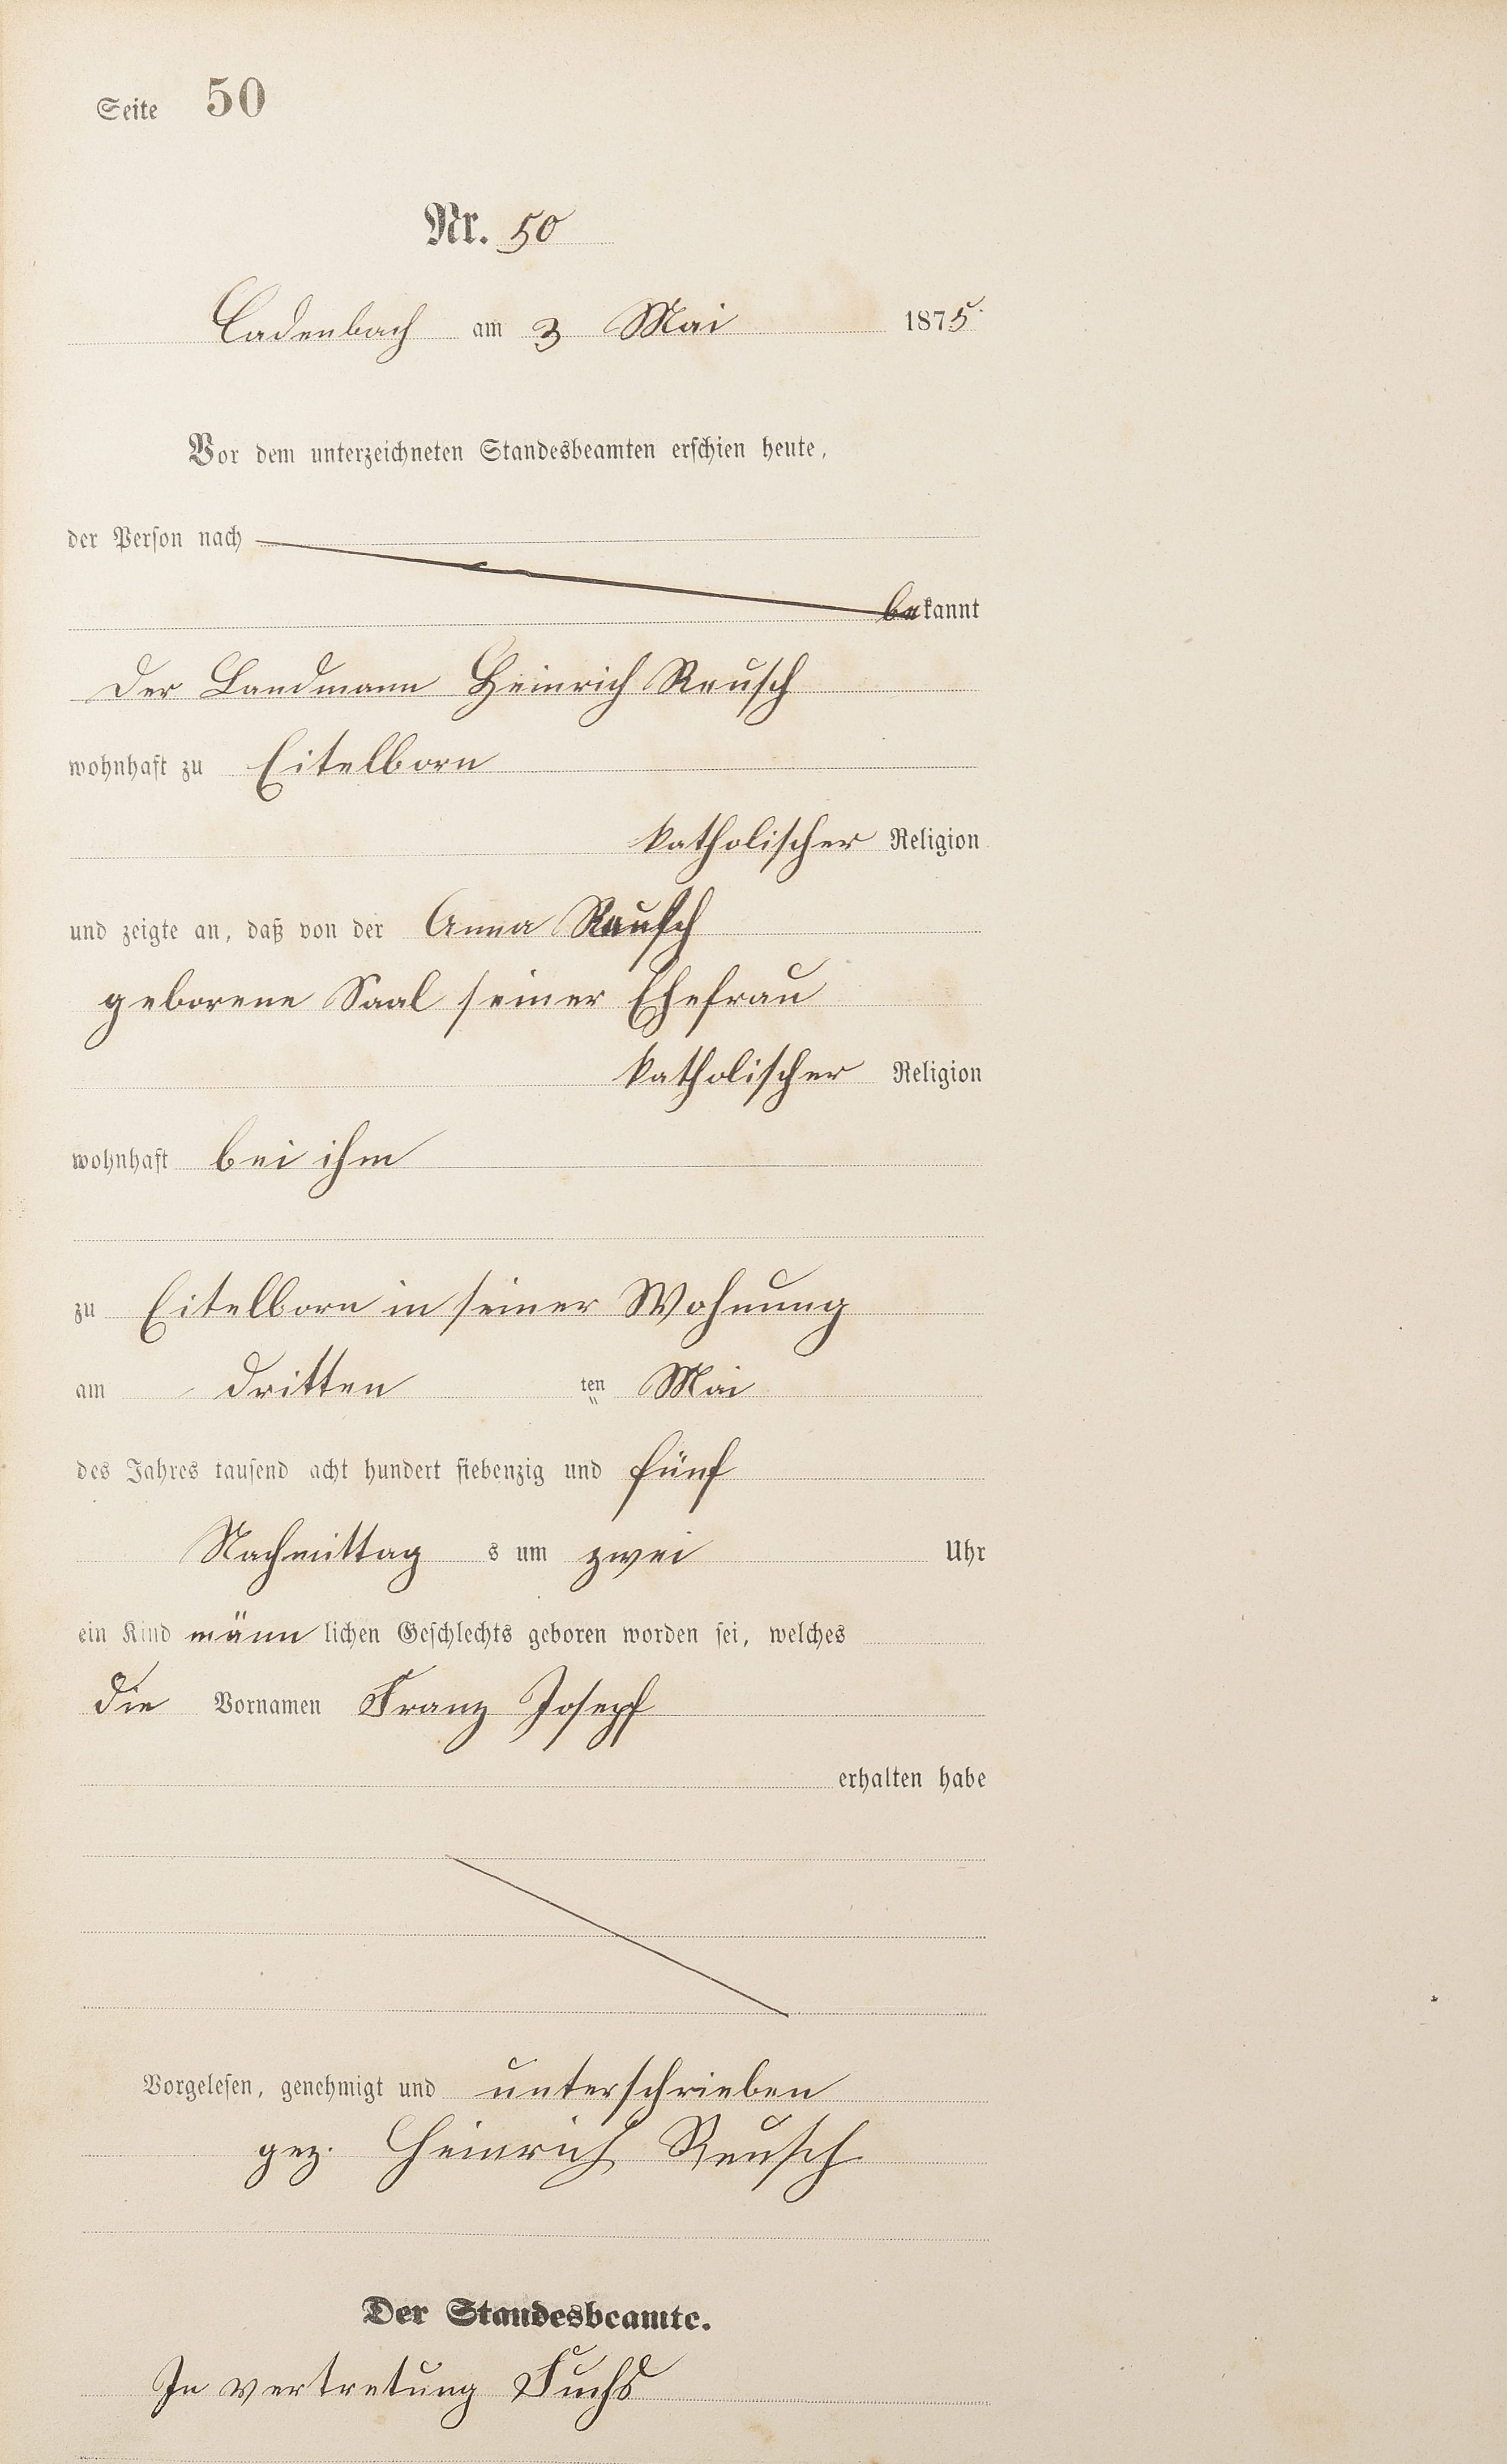 Seite 50
Nr. 50
Cadenbach am 3 Mai 1875
Vor dem unterzeichneten Standesbeamten erschien heute,
der Person nach
bekannt
Der Landmann Heinrich Reusch
wohnhaft zu Eitelborn
katholischer Religion
und zeigte an, daß von der Anna Reusch
geborene Saal seiner Ehefrau
katholischer Religion
wohnhaft bei ihm
zu Eitelborn in seiner Wohnung
am dritten ten Mai
des Jahres tausend acht hundert siebenzig und fünf
Nachmittag s um zwei Uhr
ein Kind männ lichen Geschlechts geboren worden sei, welches
die Vornamen Franz Josepf
erhalten habe
Vorgelesen, genehmigt und unterschrieben
gez. Heinrich Reusch
Der Standesbeamte.
In vertretung Fuchs